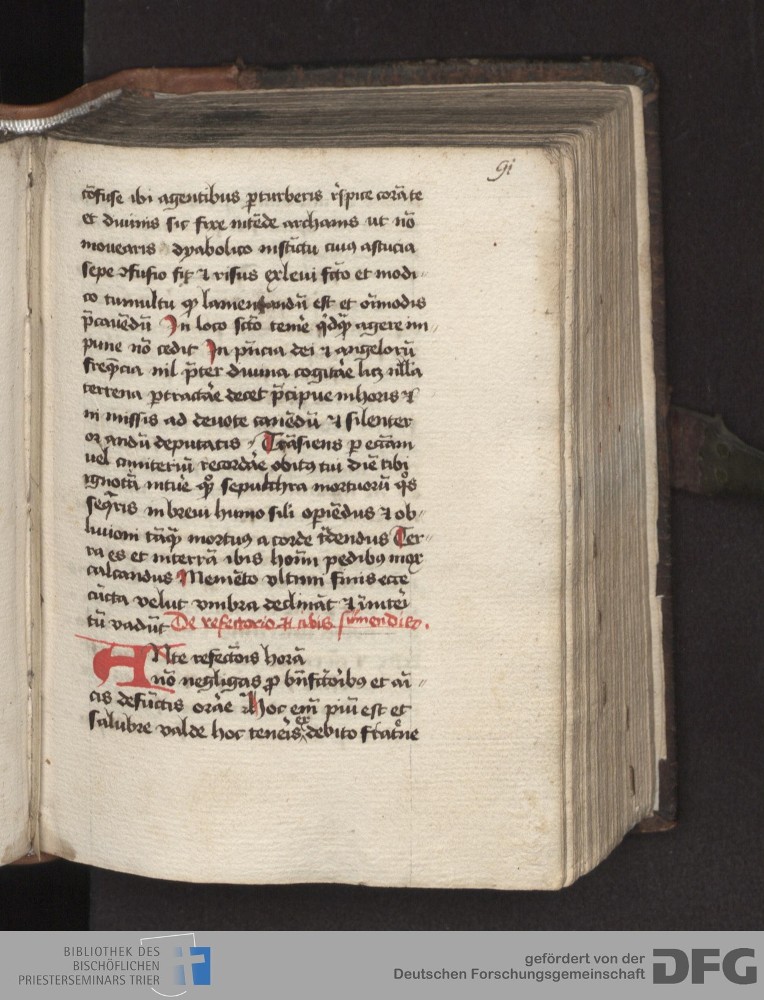 91
cōfuse ibi agentibus ꝑturberis rˀspice corā te
et diuinis sic fixe intēde archanis ut nō
mouearis dyabolico instīctu cuiꝰ astucia
sepe ꝯfusio fit ⁊ risus
et modi-
co tumultu ꝙ lamentandū est et oīmodis
p̄cauēdū In loco scō temˀe qͥdqͣ agere im-
pune nō cedit In pn̄cia dei ⁊ angelorū
freqn̄cia nil p̄ter diuina cogitāe lꝫ nlla
terrena ꝑtractāe decet p̄cipue in horis ⁊
in missis ad deuote canēdū ⁊ silenter
orandū deputatis Trāsiens ꝑ eccām
uel cimiteriū recordāe obitꝰ tui diē tibi
ignotā intuˀe qͦꝫ sepulchra mortuorū qͦs
seqͣris in breui humo sili opiēdus ⁊ ob-
liuioni tāqͣ mortuꝰ a corde tͣdendus Ter-
ra es et in terrā ibis hoīm pedibꝰ mox
calcandus Memēto vltimi finis ecce
cūcta velut vmbra declināt ⁊ ī
tū vadūt De refectorio et cibis sumendis.
ANte refectōis horā
nō negligas ꝓ bn̄fc̄toribꝰ et am-
cis defūctis orāe Hoc em̄ piū est et
salubre valde hoc teneris ex debito frat̄ne
BIBLIOTHEK DES
BISCHÖFLICHEN
PRIESTERSEMINARS TRIER
gefördert von der
Deutschen Forschungsgemeinschaft
DFG